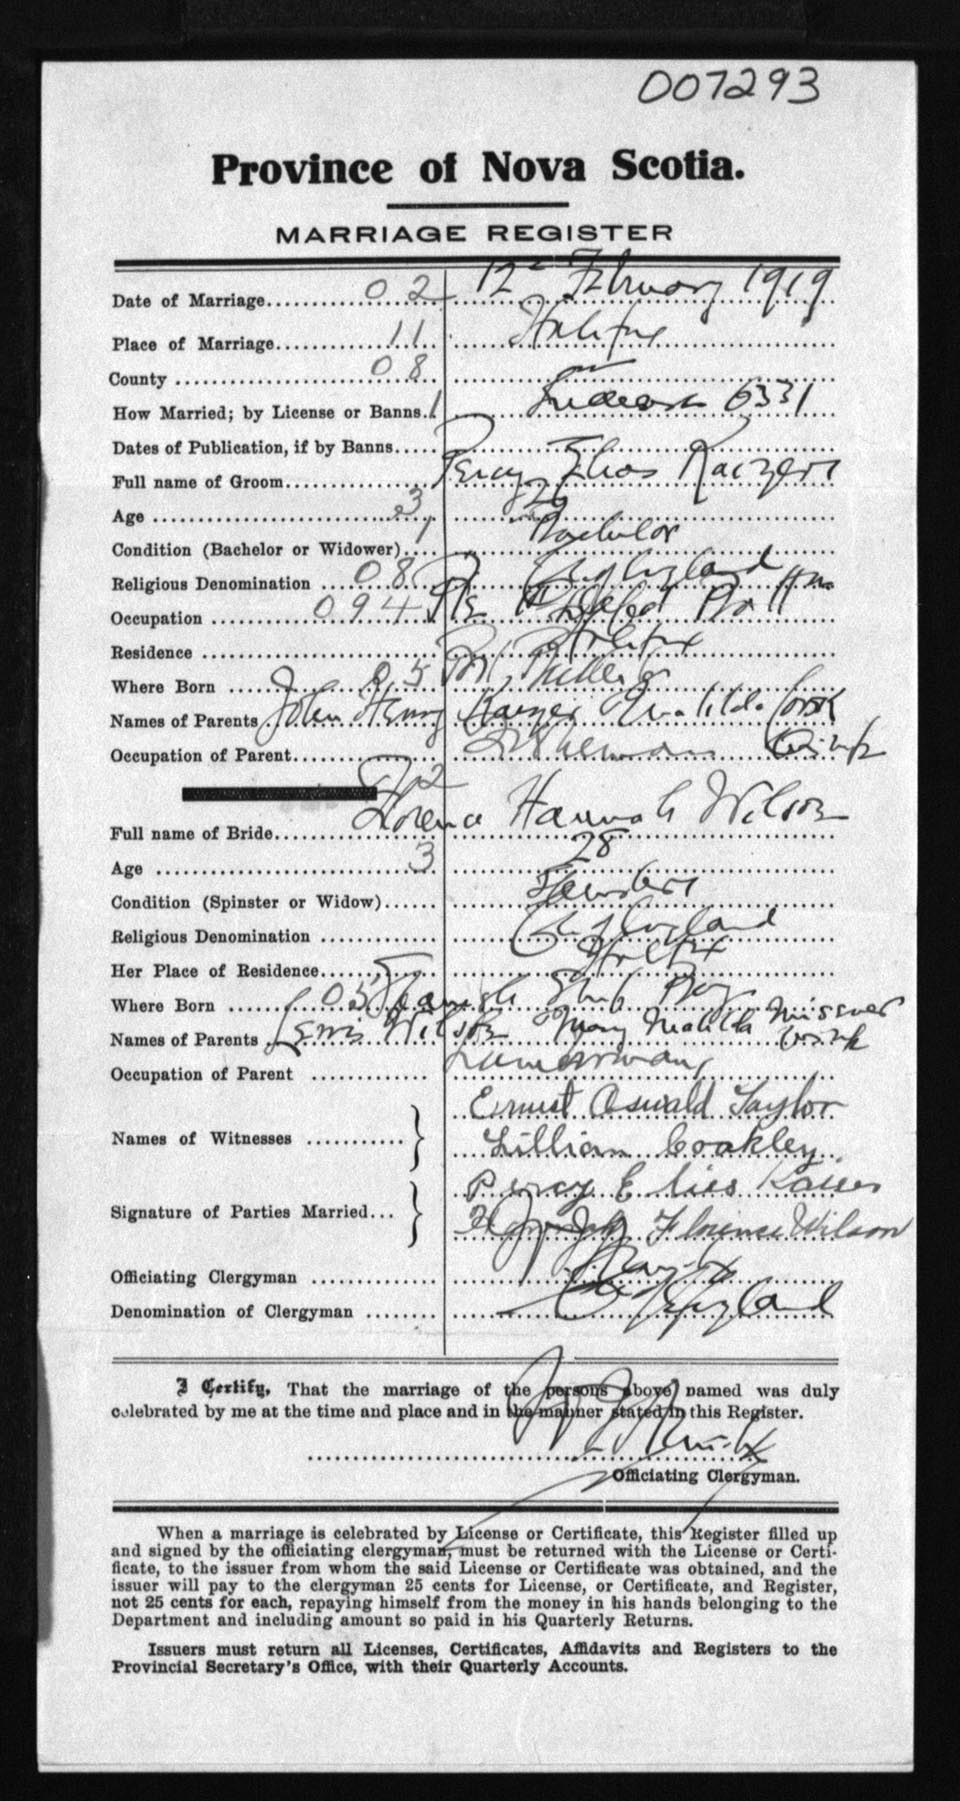 007293
Province of Nova Scotia.
MARRIAGE REGISTER
Date of Marriage 02 12 February 1919
Place of Marriage 11 Halifax
County 08 "
How Married; by License or Banns 1 License 6331
Dates of Publication, if by Banns
Full name of Groom Percy Elias
Age 3 29
Condition (Bachelor or Widower) 1 Bachelor
Religious Denomination 08 Ch of England
Occupation 094 Pte
Residence Halifax
Where Born 05 Port
Names of Parents John Henry
Occupation of Parent
Full name of Bride Hannah Wilson
Age 3 28
Condition (Spinster or Widow) Spinster
Religious Denomination Ch of England
Her Place of Residence Halifax
Where Born 05 Ship
Names of Parents Lewis Wilson Mary Matilda
Occupation of Parent Lumberman
Names of Witnesses Ernest Oswald Taylor
Lillian Coakley
Signature of Parties Married Percy Elies Kaiser
Florence Wilson
Officiating Clergyman
Denomination of Clergyman England
I Certify, That the marriage of the persons above named was duly
celebrated by me at the time and place and in the manner stated in this Register.
Officiating Clergyman.
When a marriage is celebrated by License or Certificate, this Register filled up
and signed by the officiating clergyman, must be returned with the License or Certi-
ficate, to the issuer from whom the said License or Certificate was obtained, and the
issuer will pay to the clergyman 25 cents for License, or Certificate, and Register,
not 25 cents for each, repaying himself from the money in his hands belonging to the
Department and including amount so paid in his Quarterly Returns.
Issuers must return all Licenses, Certificates, Affidavits and Registers to the
Provincial Secretary's Office, with their Quarterly Accounts.